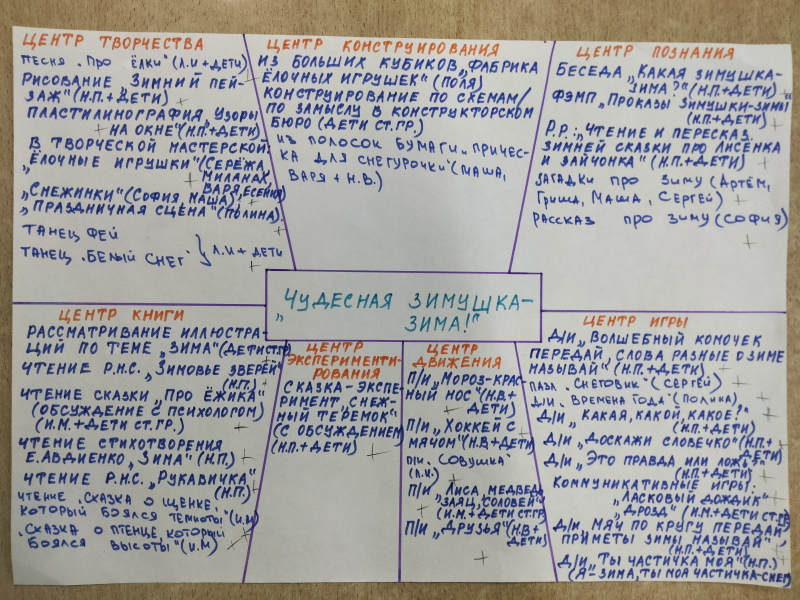 ЦЕНТР ТВОРЧЕСТВА
ПЕСНЯ „ПРО ЁЛКИ" (Л.И+ДЕТИ)
РИСОВАНИЕ „ЗИМНИЙ ПЕЙ-
ЗАЖ" (Н.П.+ДЕТИ)
ПЛАСТИЛИНОГРАФИЯ „УЗОРЫ
НА ОКНЕ" (Н.П.+ДЕТИ)
В ТВОРЧЕСКОЙ МАСТЕРСКОЙ:
„ЁЛОЧНЫЕ ИГРУШКИ" (СЕРЁЖА,
МИЛАНА,
ВАРЯ, ЕСЕНИЯ)
„СНЕЖИНКИ" (СОФИЯ, МАША)
„ПРАЗДНИЧНАЯ СЦЕНА" (ПОЛИНА).
ТАНЕЦ ФЕЙ
ТАНЕЦ „БЕЛЫЙ СНЕГ" } Л.И + ДЕТИ
ЦЕНТР КОНСТРУИРОВАНИЯ
ИЗ БОЛЬШИХ КУБИКОВ „ФАБРИКА
ЁЛОЧНЫХ ИГРУШЕК" (ПОЛЯ)
КОНСТРУИРОВАНИЕ ПО СХЕМАМ/
ПО ЗАМЫСЛУ В КОНСТРУКТОРСКОМ
БЮРО (ДЕТИ СТ.ГР.)
ИЗ ПОЛОСОК БУМАГИ „ПРИЧЕС-
КА ДЛЯ СНЕГУРОЧКИ" (МАША,
ВАРЯ + Н.В.)
ЦЕНТР ПОЗНАНИЯ
БЕСЕДА „КАКАЯ ЗИМУШКА-
ЗИМА?" (Н.П.+ДЕТИ)
ФЭМП „ПРОКАЗЫ ЗИМУШКИ-ЗИМЫ"
(Н.П.+ДЕТИ)
Р.Р.: „ЧТЕНИЕ И ПЕРЕСКАЗ
ЗИМНЕЙ СКАЗКИ ПРО ЛИСЁНКА
И ЗАЙЧОНКА" (Н.П.+ДЕТИ)
ЗАГАДКИ ПРО ЗИМУ (АРТЁМ,
ГРИША, МАША, СЕРГЕЙ)
РАССКАЗ ПРО ЗИМУ (СОФИЯ)
„ЧУДЕСНАЯ ЗИМУШКА-
ЗИМА!"
ЦЕНТР КНИГИ
РАССМАТРИВАНИЕ ИЛЛЮСТРА-
ЦИЙ ПО ТЕМЕ „ЗИМА" (ДЕТИ СТ.ГР)
ЧТЕНИЕ Р.Н.С. „ЗИМОВЬЕ ЗВЕРЕЙ"
(Н.П.)
ЧТЕНИЕ СКАЗКИ „ПРО ЁЖИКА"
(ОБСУЖДЕНИЕ С ПСИХОЛОГОМ)
(И.М.+ДЕТИ СТ.ГР.)
ЧТЕНИЕ СТИХОТВОРЕНИЯ
Е.АВДИЕНКО „ЗИМА" (Н.П.)
ЧТЕНИЕ Р.Н.С. „РУКАВИЧКА"
(Н.П.)
ЧТЕНИЕ „СКАЗКА О ЩЕНКЕ,
КОТОРЫЙ БОЯЛСЯ ТЕМНОТЫ" (И.М)
„СКАЗКА О ПТЕНЦЕ, КОТОРЫЙ
БОЯЛСЯ ВЫСОТЫ" (И.М)
ЦЕНТР
ЭКСПЕРИМЕНТИ-
РОВАНИЯ
СКАЗКА-ЭКСПЕ-
РИМЕНТ „СНЕЖ-
НЫЙ ТЕРЕМОК"
(С ОБСУЖДЕНИЕМ)
(Н.П+ДЕТИ)
ЦЕНТР
ДВИЖЕНИЯ
П/И „МОРОЗ-КРАС-
НЫЙ НОС" (Н.В+
ДЕТИ)
П/И „ХОККЕЙ С
МЯЧОМ" (Н.В+ДЕТИ)
П/И „СОВУШКА"
(Л.И.)
П/И „ЛИСА, МЕДВЕДЬ,
ЗАЯЦ, СОЛОВЕЙ"
(И.М.+ДЕТИ СТ.ГР)
П/И „ДРУЗЬЯ" (Н.В+
ДЕТИ)
ЦЕНТР ИГРЫ
Д/И „ВОЛШЕБНЫЙ КОМОЧЕК
ПЕРЕДАЙ, СЛОВА РАЗНЫЕ О ЗИМЕ
НАЗЫВАЙ" (Н.П.+ДЕТИ)
ПАЗЛ „СНЕГОВИК" (СЕРГЕЙ)
Д/И „ВРЕМЕНА ГОДА" (ПОЛИНА)
Д/И „КАКАЯ, КАКОЙ, КАКОЕ?"
(Н.П.+ДЕТИ)
Д/И „ДОСКАЖИ СЛОВЕЧКО" (Н.П.+
ДЕТИ)
Д/И „ЭТО ПРАВДА ИЛИ ЛОЖЬ?"
(Н.П.+ДЕТИ)
КОММУНИКАТИВНЫЕ ИГРЫ:
„ЛАСКОВЫЙ ДОЖДИК"
„ДРОЗД" (И.М+ДЕТИ СТ.ГР)
Д/И „МЯЧ ПО КРУГУ ПЕРЕДАЙ,
ПРИМЕТЫ ЗИМЫ НАЗЫВАЙ"
(Н.П.+ДЕТИ)
Д/И „ТЫ ЧАСТИЧКА МОЯ" (Н.П.)
(Я-ЗИМА, ТЫ МОЯ ЧАСТИЧКА-СНЕГ)